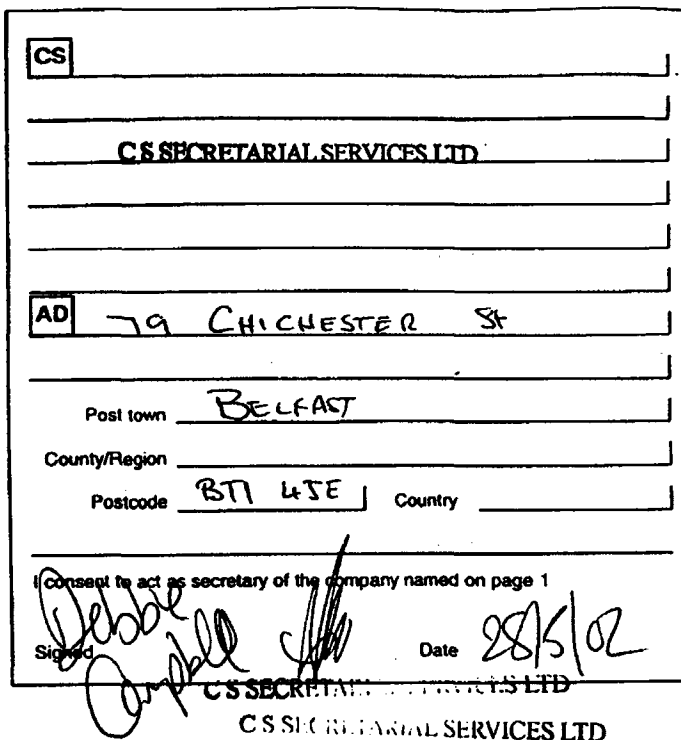 CS
C S SECRETARIAL SERVICES LTD
AD 79 CHICHESTER St
Post town BELFAST
County/Region
Postcode BT1 4JE Country
I consent to act as secretary of the company named on page 1
Debbie
Signed Campbell Date 28/5/02
C S SECRETARIAL SERVICES LTD
C S SECRETARIAL SERVICES LTD